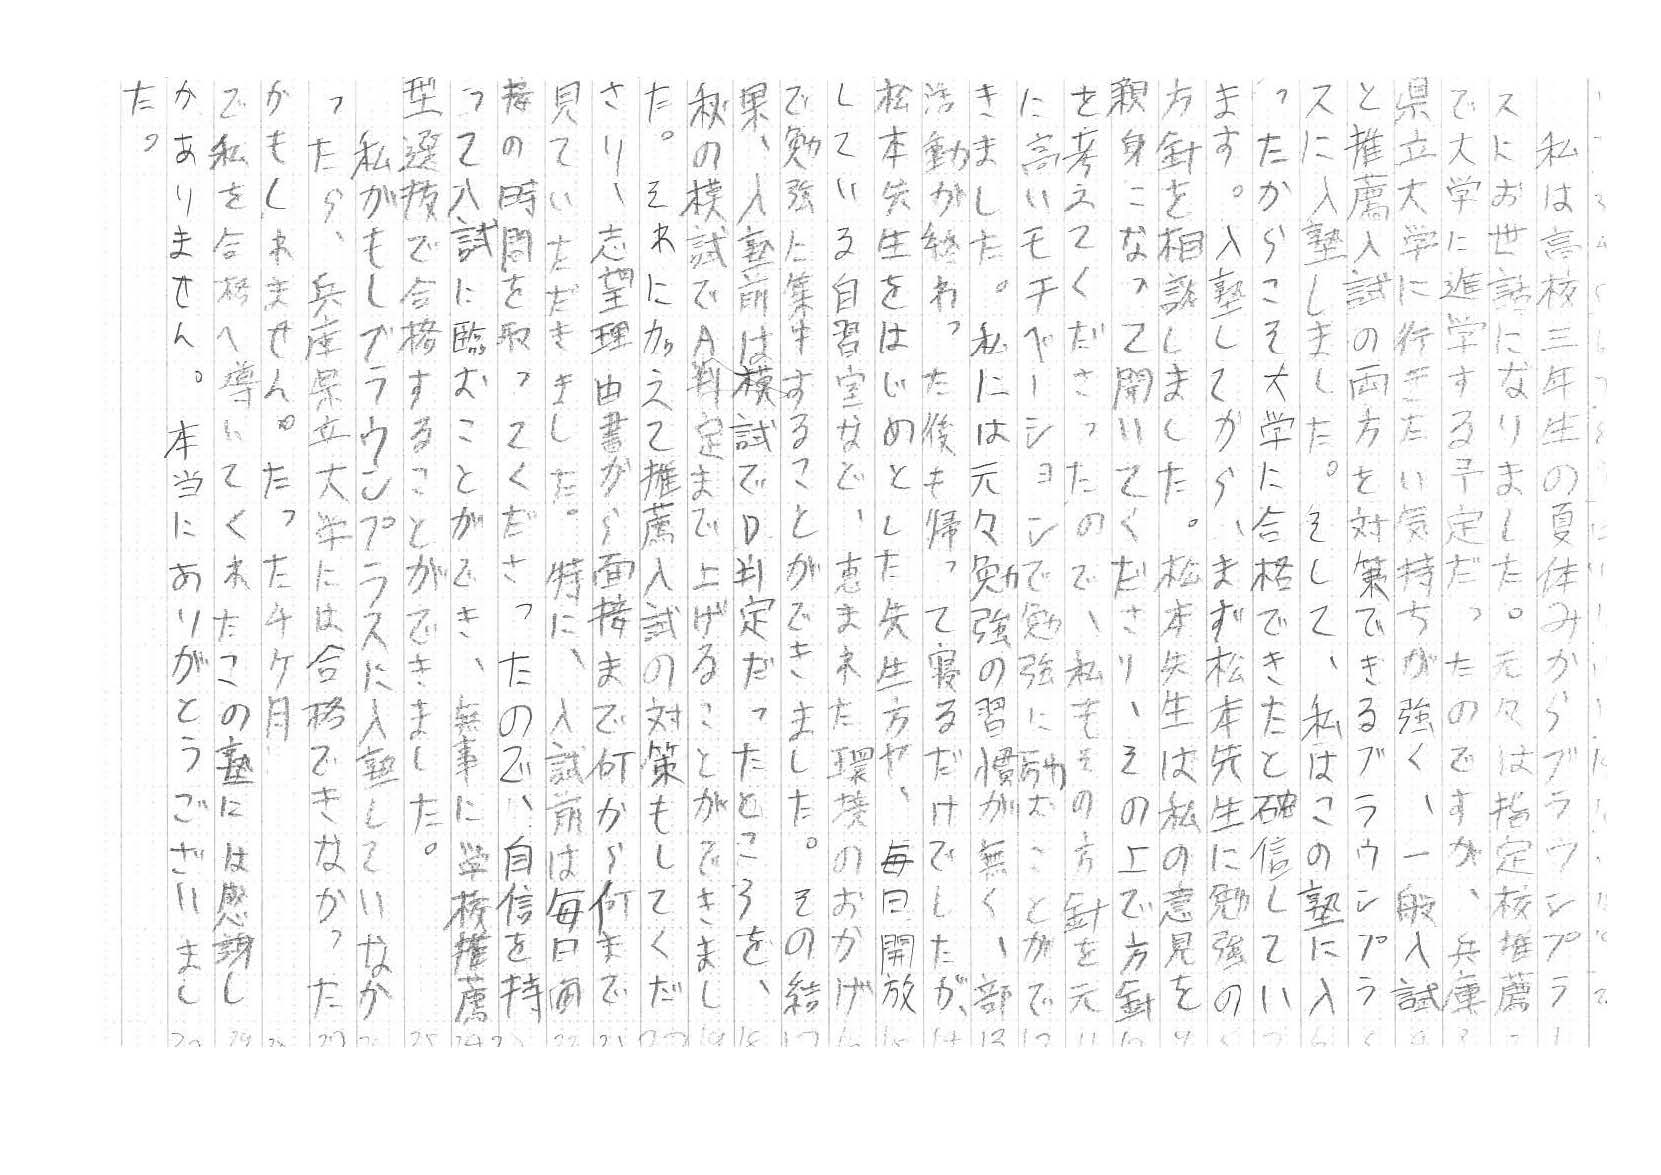 私は高校三年生の夏休みからブラウンプラ
スにお世話になりました。元々は指定校推薦
で大学に進学する予定だったのですが、兵庫
県立大学に行きたい気持ちが強く、一般入試
と推薦入試の両方を対策できるブラウンプラ
スに入塾しました。そして、私はこの塾に入
ったからこそ大学に合格できたと確信してい
ます。入塾してから、まず松本先生に勉強の
方針を相談しました。松本先生は私の意見を
親身になって聞いてくださり、その上で方針
を考えてくださったので、私もその方針を元
に高いモチベーションで勉強に励むことがで
きました。私には元々勉強の習慣が無く、部
活動が終わった後も帰って寝るだけでしたが、
松本先生をはじめとした先生方や、毎日開放
している自習室など、恵まれた環境のおかげ
で勉強に集中することができました。その結
果、入塾前は模試でD判定だったところを、
秋の模試でA判定まで上げることができまし
た。それに加えて推薦入試の対策もしてくだ
さり、志望理由書から面接まで何から何まで
見ていただきました。特に、入試前は毎日面
接の時間を取ってくださったので、自信を持
って入試に臨むことができ、無事に学校推薦
型選抜で合格することができました。
私がもしブラウンプラスに入塾していなか
ったら、兵庫県立大学には合格できなかった
かもしれません。たった4ヶ月
で私を合格へ導いてくれたこの塾には感謝し
かありません。本当にありがとうございまし
た。